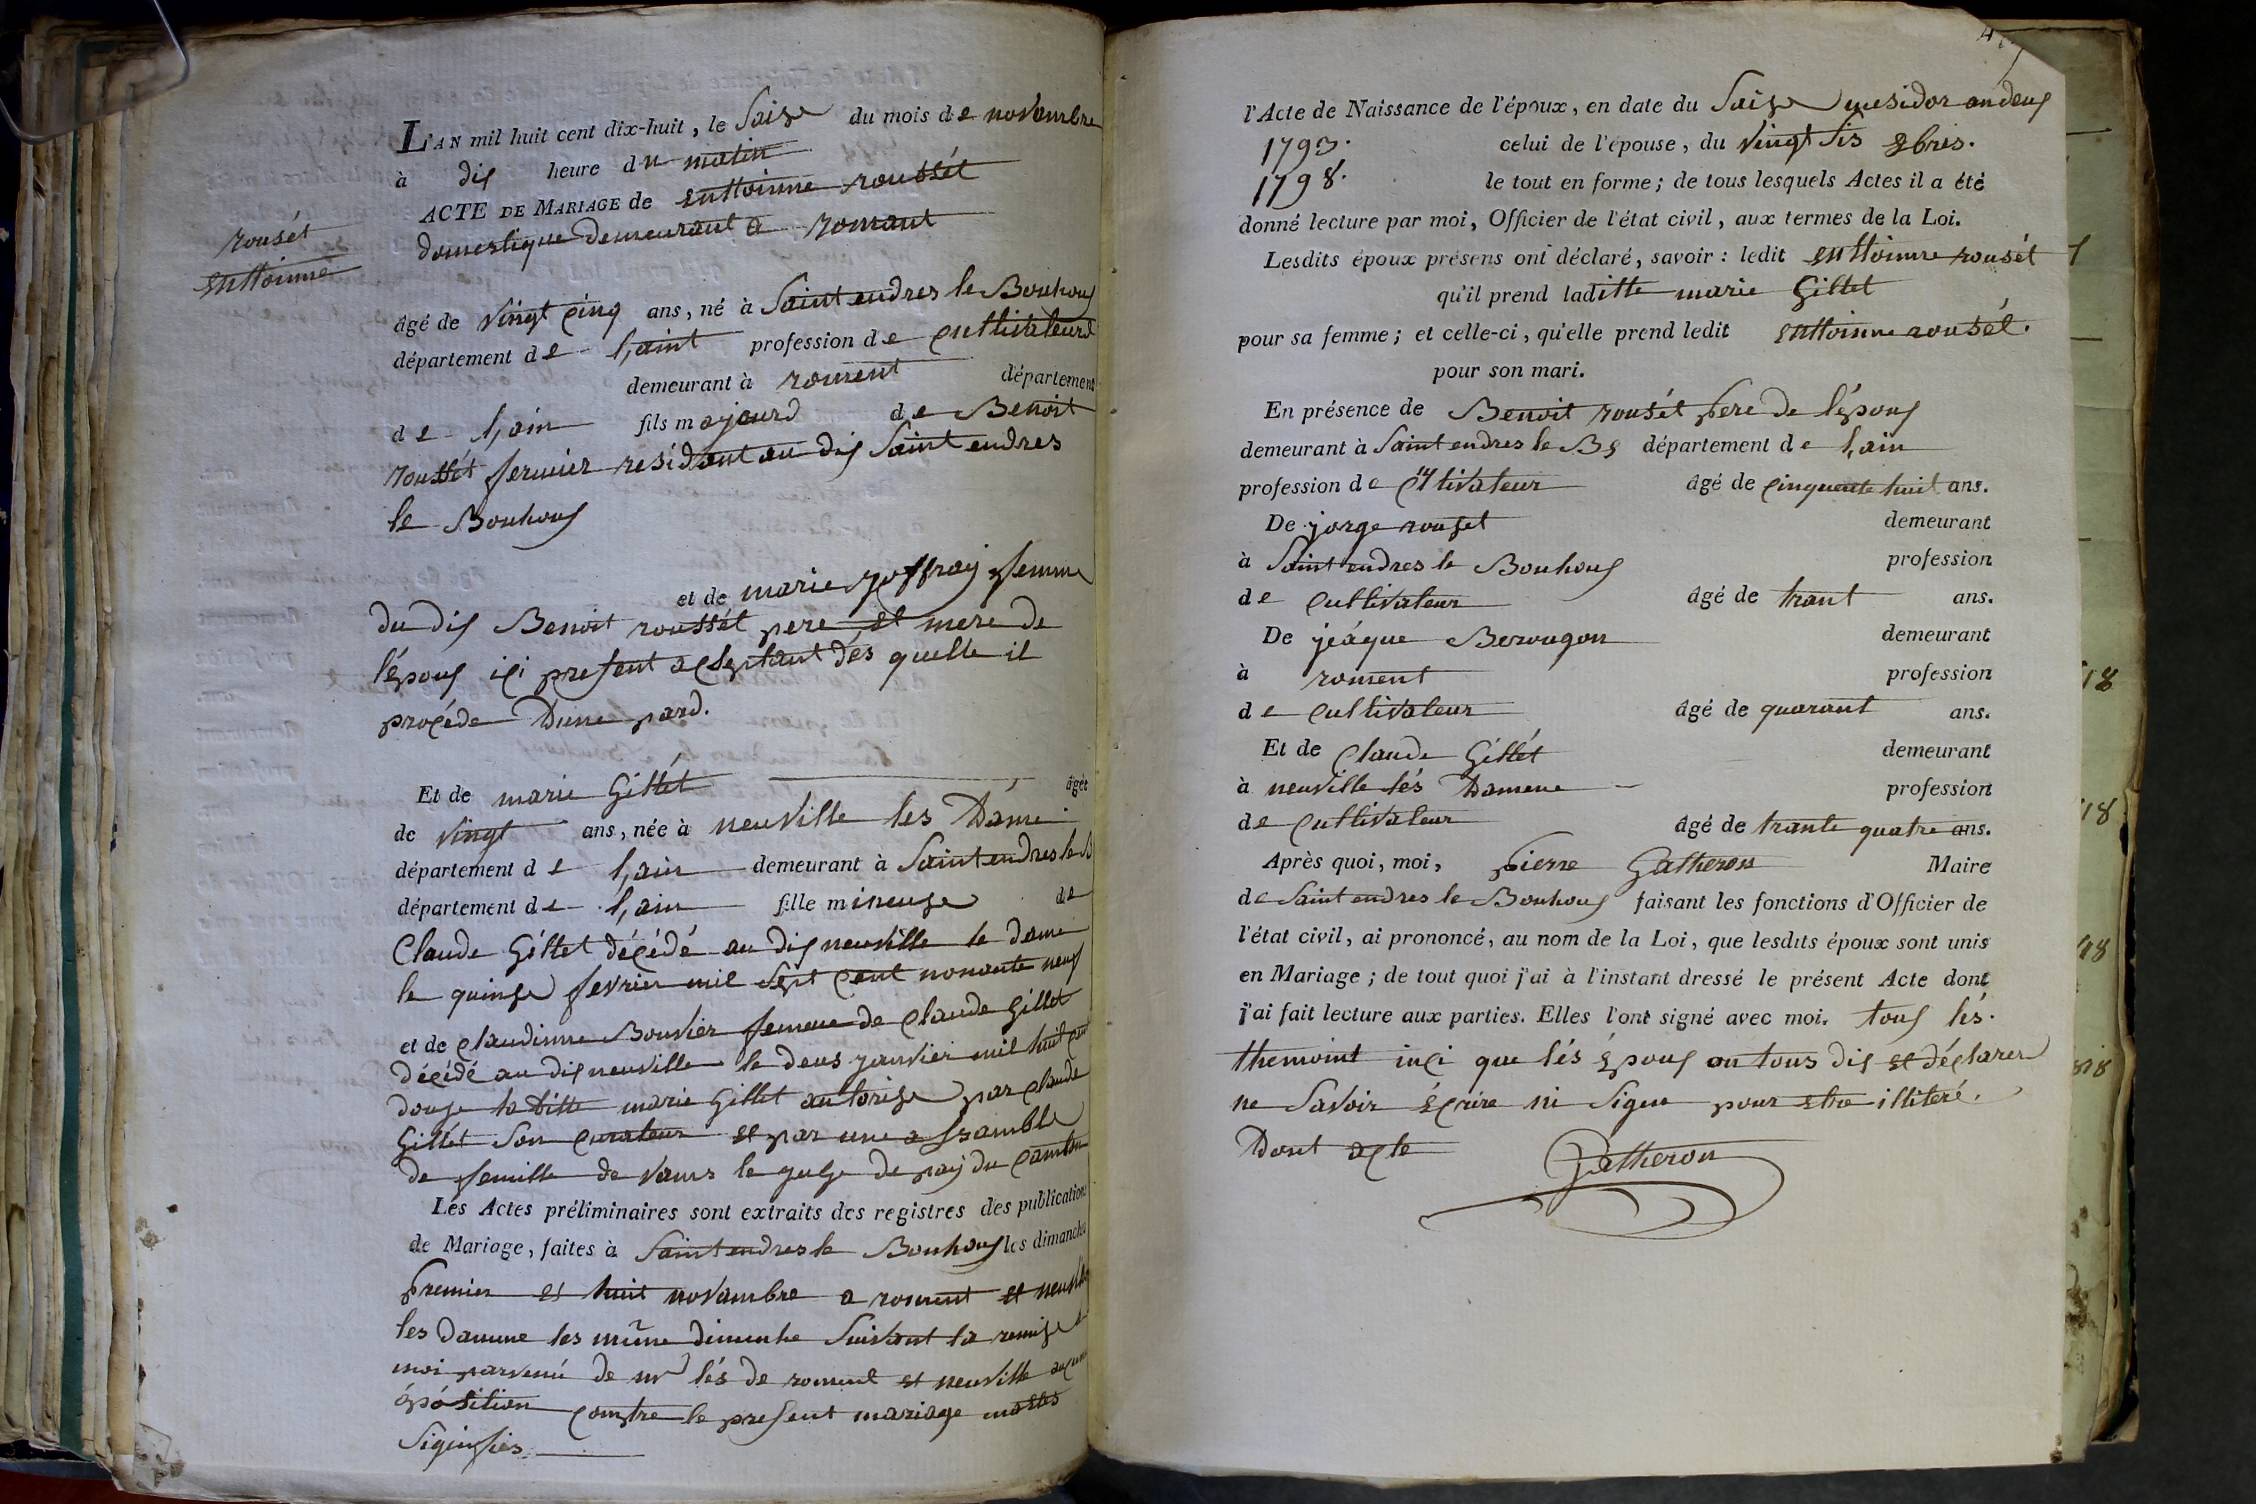 rousét
enttoinne
L'AN mil huit cent dix-huit, le Saise du mois de novembre
à dis heure du matin
ACTE DE MARIAGE de enttoinne roussét
domestique demeurant a romant
âgé de vingt cinq ans, né à Saint endres le Bouhous
département de l,aint profession de cultivateurd
demeurant à roment département
de l,ain fils majeurd de Benoit
roussét fermier residant au dis Saint endres
le Bouhous
et de marie joffray femme
du dis Benoit roussét pere et mere de
l'épous ici present acseptant dés quelle il
procéde Dune pard.
Et de marie Gillét âgée
de vingt ans, née à neuville les Dame
département de l,ain demeurant à Saint endres le B
département de l,ain fille mineuse de
Claude Gillet décédé au dis neuville le dame
le quinse fevrier mil sept cent nonante neuf
et de claudinne Bouvier femme de claude Gillet
décédé au dis neuville le deus janvier mil huit cent
douse la ditte marie Gillet autorise par claude
Gillét Son curateur et par une assamble
de femille de vams le juge de pay du canton
Les Actes préliminaires sont extraits des registres des publications
de Mariage, faites à Saint endres le Bouhous les dimanche
premier et huit novambre a roment et neuville
les Damme les même dimenhe Suivant la remise a
moi parvenú de mr lés de roment et neuville aucune
épósition comptre le present mariage
Signifiés
l'Acte de Naissance de l'époux, en date du Saise mesidor an deus
1793. celui de l'épouse, du vingt sis 8bris.
1798. le tout en forme; de tous lesquels Actes il a été
donné lecture par moi, Officier de l'état civil, aux termes de la Loi.
Lesdits époux présens ont déclaré, savoir : ledit enttoinne rousét
qu'il prend laditte marie Gillet
pour sa femme; et celle-ci, qu'elle prend ledit enttoinne rousét.
pour son mari.
En présence de Benoit rousét pere de l'épous
demeurant à Saint endres le Bs département de l,ain
profession de cultivateur âgé de cinquente huit ans.
De jorge rouset demeurant
à Saint endres le Bouhous profession
de cultivateur âgé de trant ans.
De jeáque Berougon demeurant
à roment profession
de cultivateur âgé de quarant ans.
Et de Claude Gillét demeurant
à neuville lés Damene profession
de cultivateur âgé de trante quatre ans.
Après quoi, moi, pierre Gatheron Maire
de Saint endres le Bouhous faisant les fonctions d'Officier de
l'état civil, ai prononcé, au nom de la Loi, que lesdits époux sont unis
en Mariage; de tout quoi j'ai à l'instant dressé le présent Acte dont
j'ai fait lecture aux parties. Elles l'ont signé avec moi. tous lés.
themoint inci que lés épous on tous dis et déclarer
ne Savoir écrire ni Signer pour etre illiteré.
Dont acte Gatheron
18
18
18